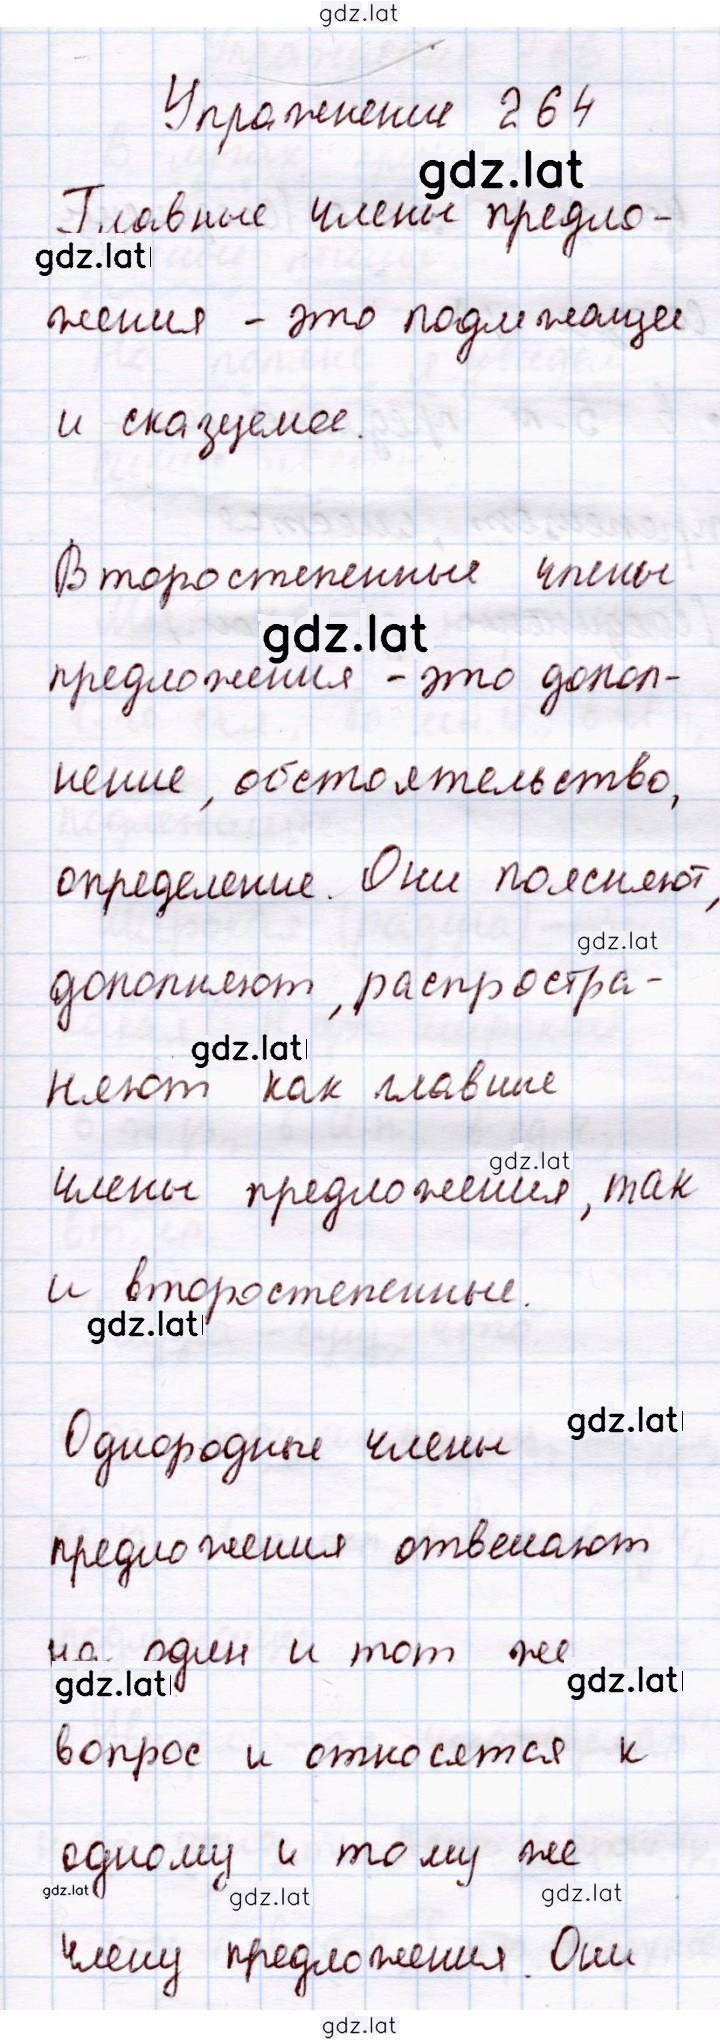 gdz.lat
Упражнение 264
gdz.lat
Главные члены предло-
gdz.lat
жения - это подлежащее
и сказуемое.
Второстепенные члены
gdz.lat
предложения - это допол-
нение, обстоятельство,
определение. Они поясняют,
gdz.lat
дополняют, распростра-
gdz.lat
няют как главные
gdz.lat
члены предложения, так
и второстепенные.
gdz.lat
gdz.lat
Однородные члены
предложения отвечают
на один и тот же
gdz.lat gdz.lat
вопрос и относятся к
одному и тому же
gdz.lat gdz.lat gdz.lat
члену предложения. Они
gdz.lat